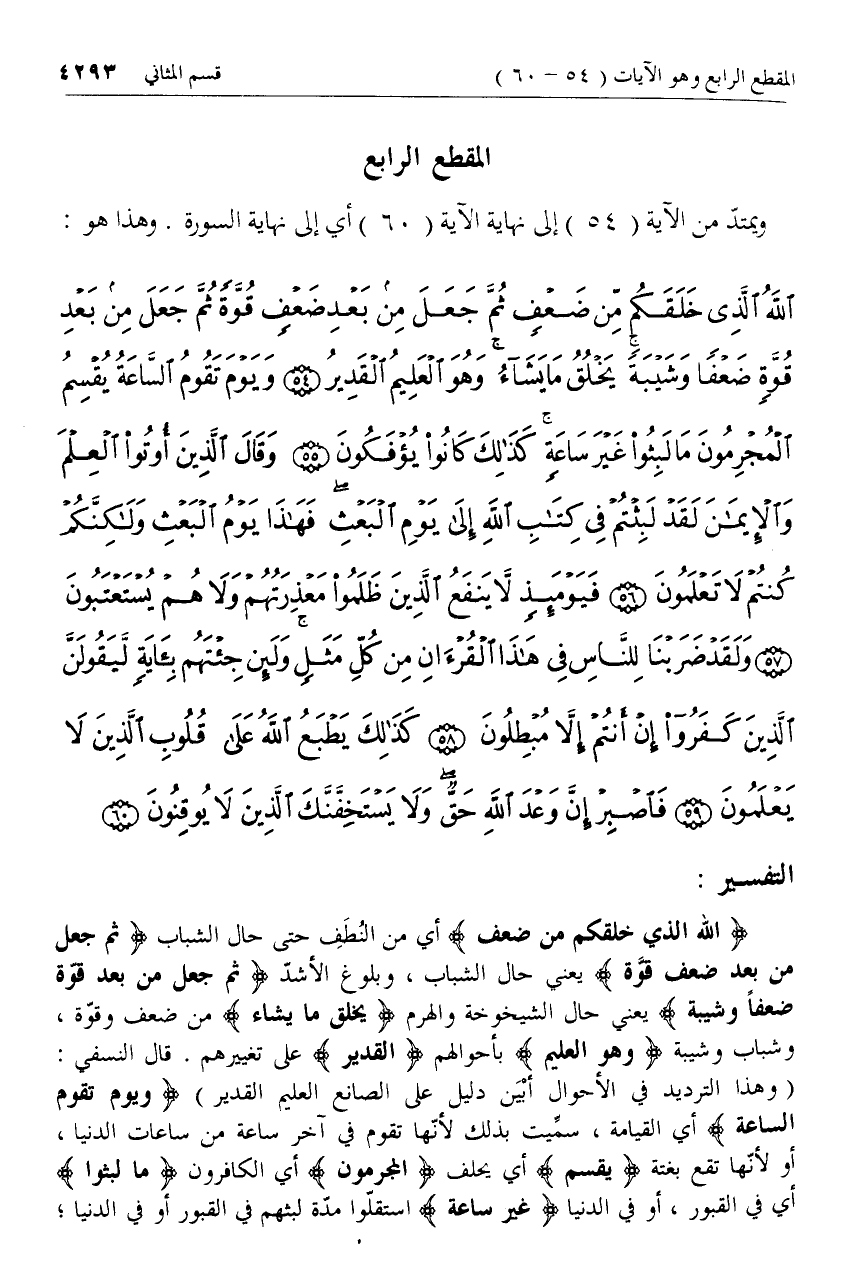 المقطع الرابع وهو الآيات ( ٥٤ - ٦٠ ) قسم المثاني ٤٢٩٣
المقطع الرابع
ويمتدّ من الآية ( ٥٤ ) إلى نهاية الآية ( ٦٠ ) أي إلى نهاية السورة . وهذا هو :
ٱللَّهُ ٱلَّذِى خَلَقَكُم مِّن ضَعْفٍ ثُمَّ جَعَلَ مِنۢ بَعْدِ ضَعْفٍ قُوَّةً ثُمَّ جَعَلَ مِنۢ بَعْدِ
قُوَّةٍ ضَعْفًا وَشَيْبَةً ۚ يَخْلُقُ مَا يَشَآءُ ۖ وَهُوَ ٱلْعَلِيمُ ٱلْقَدِيرُ ۝٥٤ وَيَوْمَ تَقُومُ ٱلسَّاعَةُ يُقْسِمُ
ٱلْمُجْرِمُونَ مَا لَبِثُوا۟ غَيْرَ سَاعَةٍ ۚ كَذَٰلِكَ كَانُوا۟ يُؤْفَكُونَ ۝٥٥ وَقَالَ ٱلَّذِينَ أُوتُوا۟ ٱلْعِلْمَ
وَٱلْإِيمَٰنَ لَقَدْ لَبِثْتُمْ فِى كِتَٰبِ ٱللَّهِ إِلَىٰ يَوْمِ ٱلْبَعْثِ ۖ فَهَٰذَا يَوْمُ ٱلْبَعْثِ وَلَٰكِنَّكُمْ
كُنتُمْ لَا تَعْلَمُونَ ۝٥٦ فَيَوْمَئِذٍ لَّا يَنفَعُ ٱلَّذِينَ ظَلَمُوا۟ مَعْذِرَتُهُمْ وَلَا هُمْ يُسْتَعْتَبُونَ
۝٥٧ وَلَقَدْ ضَرَبْنَا لِلنَّاسِ فِى هَٰذَا ٱلْقُرْءَانِ مِن كُلِّ مَثَلٍ ۚ وَلَئِن جِئْتَهُم بِـَٔايَةٍ لَّيَقُولَنَّ
ٱلَّذِينَ كَفَرُوٓا۟ إِنْ أَنتُمْ إِلَّا مُبْطِلُونَ ۝٥٨ كَذَٰلِكَ يَطْبَعُ ٱللَّهُ عَلَىٰ قُلُوبِ ٱلَّذِينَ لَا
يَعْلَمُونَ ۝٥٩ فَٱصْبِرْ إِنَّ وَعْدَ ٱللَّهِ حَقٌّ ۖ وَلَا يَسْتَخِفَّنَّكَ ٱلَّذِينَ لَا يُوقِنُونَ ۝٦٠
التفسير :
﴿ الله الذي خلقكم من ضعف ﴾ أي من النُطَفِ حتى حال الشباب ﴿ ثم جعل
من بعد ضعف قوَّة ﴾ يعني حال الشباب ، وبلوغ الأشدّ ﴿ ثم جعل من بعد قوّة
ضعفاً وشيبة ﴾ يعني حال الشيخوخة والهرم ﴿ يخلق ما يشاء ﴾ من ضعف وقوة ،
وشباب وشيبة ﴿ وهو العليم ﴾ بأحوالهم ﴿ القدير ﴾ على تغييرهم . قال النسفي :
( وهذا الترديد في الأحوال أبْيَن دليل على الصانع العليم القدير ) ﴿ ويوم تقوم
الساعة ﴾ أي القيامة ، سمِّيت بذلك لأنّها تقوم في آخر ساعة من ساعات الدنيا ،
أو لأنّها تقع بغتة ﴿ يقسم ﴾ أي يحلف ﴿ المجرمون ﴾ أي الكافرون ﴿ ما لبثوا ﴾
أي في القبور ، أو في الدنيا ﴿ غير ساعة ﴾ استقلّوا مدّة لبثهم في القبور أو في الدنيا ؛